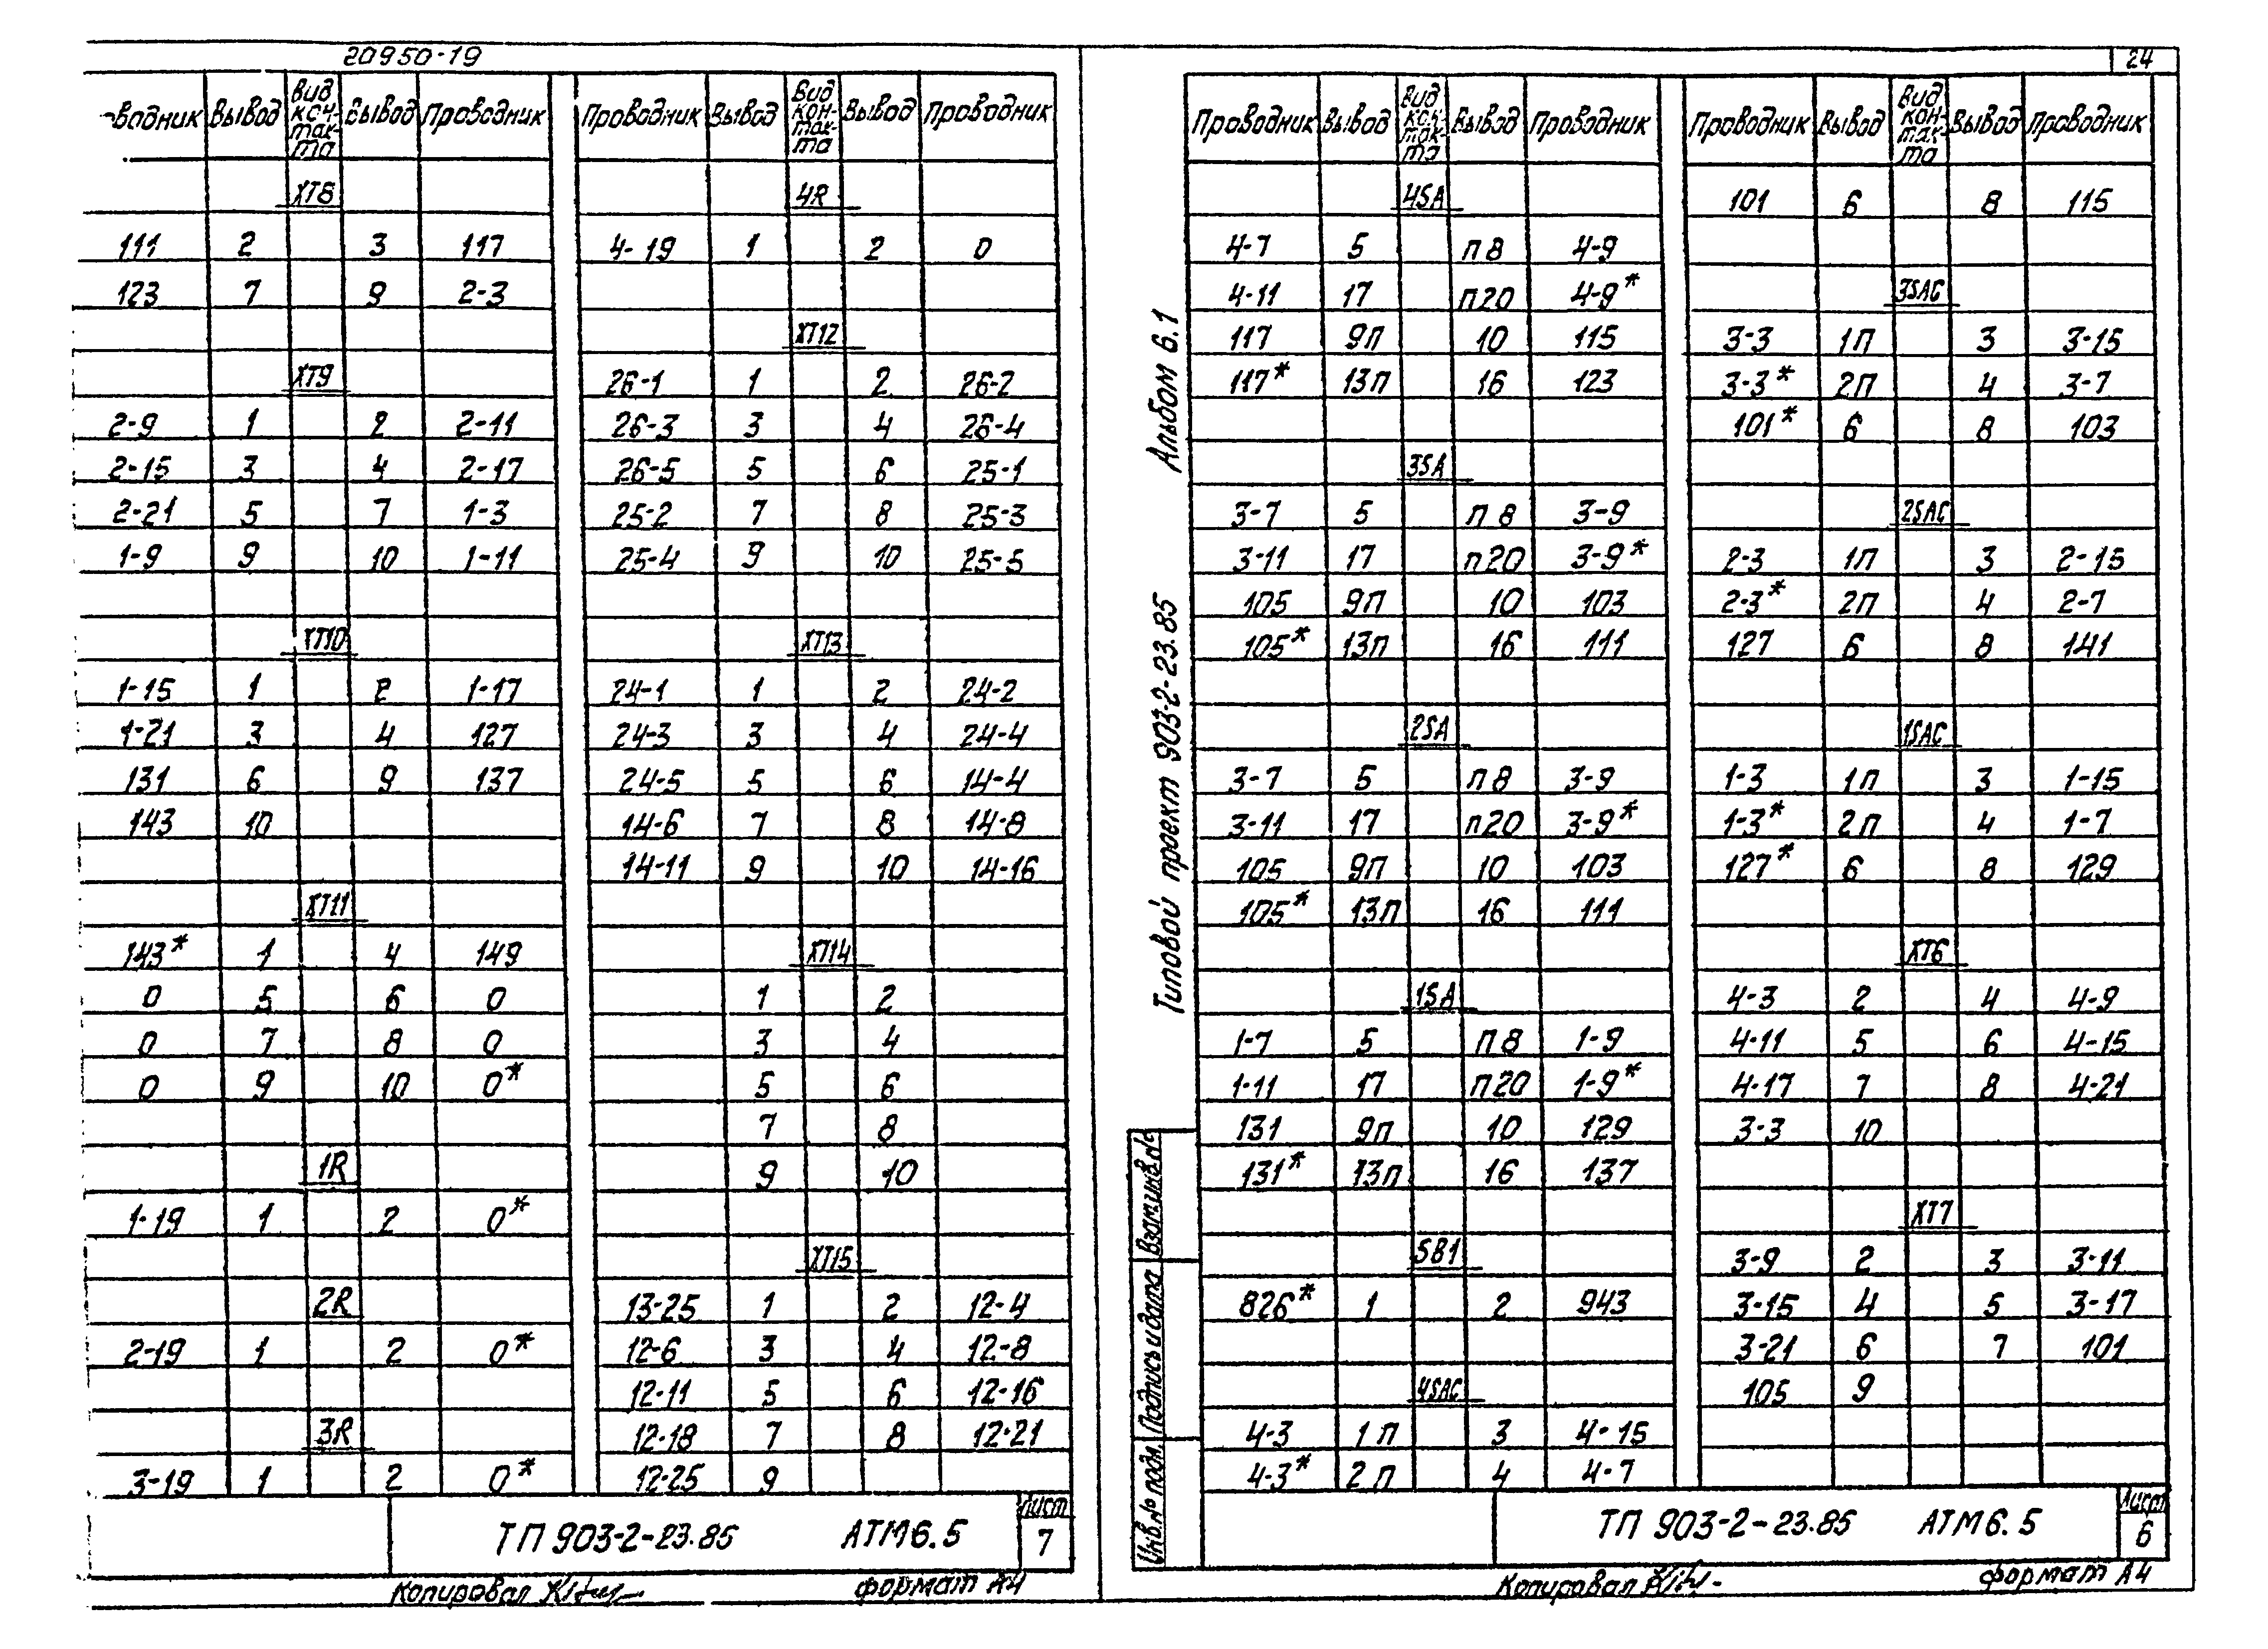 20950-19
-водник Вывод Вид кон-так-та Вывод Проводник
XT8
111 2 3 117
123 7 9 2-3
XT9
2-9 1 2 2-11
2-15 3 4 2-17
2-21 5 7 1-3
1-9 9 10 1-11
XT10
1-15 1 2 1-17
1-21 3 4 127
131 6 9 137
143 10
XT11
143* 1 4 149
0 5 6 0
0 7 8 0
0 9 10 0*
1R
1-19 1 2 0*
2R
2-19 1 2 0*
3R
3-19 1 2 0*
Проводник Вывод Вид кон-так-та Вывод Проводник
4R
4-19 1 2 0
XT12
26-1 1 2 26-2
26-3 3 4 26-4
26-5 5 6 25-1
25-2 7 8 25-3
25-4 9 10 25-5
XT13
24-1 1 2 24-2
24-3 3 4 24-4
24-5 5 6 14-4
14-6 7 8 14-8
14-11 9 10 14-16
XT14
1 2
3 4
5 6
7 8
9 10
XT15
13-25 1 2 12-4
12-6 3 4 12-8
12-11 5 6 12-16
12-18 7 8 12-21
12-25 9
ТП 903-2-23.85 АТМ6.5
Лист
7
Копировал
формат А4
24
Альбом 6.1
Типовой проект 903-2-23.85
Взам.инв.№
Подпись и дата
Инв.№ подл.
Проводник Вывод Вид кон-так-та Вывод Проводник
4SA
4-7 5 п8 4-9
4-11 17 п20 4-9*
117 9п 10 115
117* 13п 16 123
3SA
3-7 5 п8 3-9
3-11 17 п20 3-9*
105 9п 10 103
105* 13п 16 111
2SA
3-7 5 п8 3-9
3-11 17 п20 3-9*
105 9п 10 103
105* 13п 16 111
1SA
1-7 5 п8 1-9
1-11 17 п20 1-9*
131 9п 10 129
131* 13п 16 137
SB1
826* 1 2 943
4SAC
4-3 1п 3 4-15
4-3* 2п 4 4-7
Проводник Вывод Вид кон-так-та Вывод Проводник
101 6 8 115
3SAC
3-3 1п 3 3-15
3-3* 2п 4 3-7
101* 6 8 103
2SAC
2-3 1п 3 2-15
2-3* 2п 4 2-7
127 6 8 141
1SAC
1-3 1п 3 1-15
1-3* 2п 4 1-7
127* 6 8 129
XT6
4-3 2 4 4-9
4-11 5 6 4-15
4-17 7 8 4-21
3-3 10
XT7
3-9 2 3 3-11
3-15 4 5 3-17
3-21 6 7 101
105 9
ТП 903-2-23.85 АТМ6.5
Лист
6
Копировал
формат А4